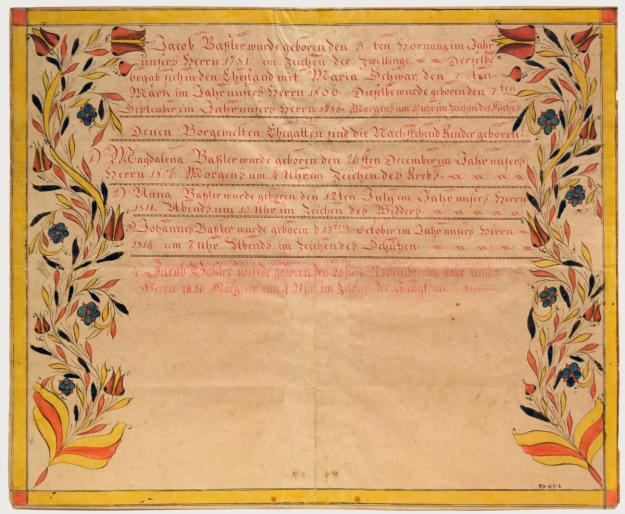 Jacob Baßler wurde geboren den ten Hornung im Jahr
unsers Herrn 1781 im Zeichen der Zwillinge Derselbe
begab sich in den Ehestand mit Maria Schwar den ten
Mertz im Jahr unsers Herrn 1806. Dieselbe wurde geboren den 7ten
September im Jahr unsers Herrn 1786. Morgens um Uhr im Zeichen des Fisches
Denen Vorgemelten Ehegatten sind die Nachstehend Kinder geboren.
1) Magdalena Baßler wurde geboren den 26sten December im Jahr unsers
Herrn Morgens um 4 Uhr, im Zeichen des Krebs
2) Anna Baßler wurde geboren den 12ten July im Jahr unsers Herrn
1811. Abends um 10 Uhr im Zeichen des Widders
3) Johannes Baßler wurde geboren d 17ten October im Jahr unsers Herrn
1814 um 7 Uhr Abends im Zeichen des Schützen
4 Jacob Baßler wurde geboren den November im Jahr unsers
Herrn 1820 Morgens um 4 Uhr im Zeichen der Jungfrau